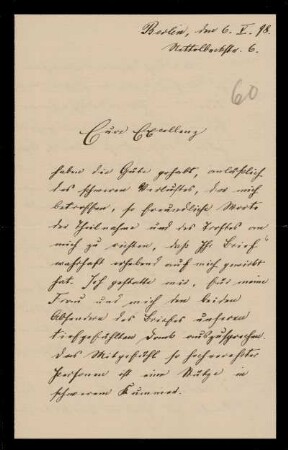 Berlin, den 6. I. 98.
Nettelbeckstr. 6.
60
Eure Excellenz
haben die Güte gehabt, anläßlich
des schweren Verlustes, der mich
betroffen, so freundliche Worte
der Theilnahme und des Trostes an
mich zu richten, daß Ihr Brief
wahrhaft erhebend auf mich gewirkt
hat. Ich gestatte mir, für meine
Frau und mich den beiden
Absendern des Briefes unseren
tiefgefühlten Dank auszusprechen.
Das Mitgefühl so hochverehrter
Personen ist eine Stütze in
schwerem Kummer.